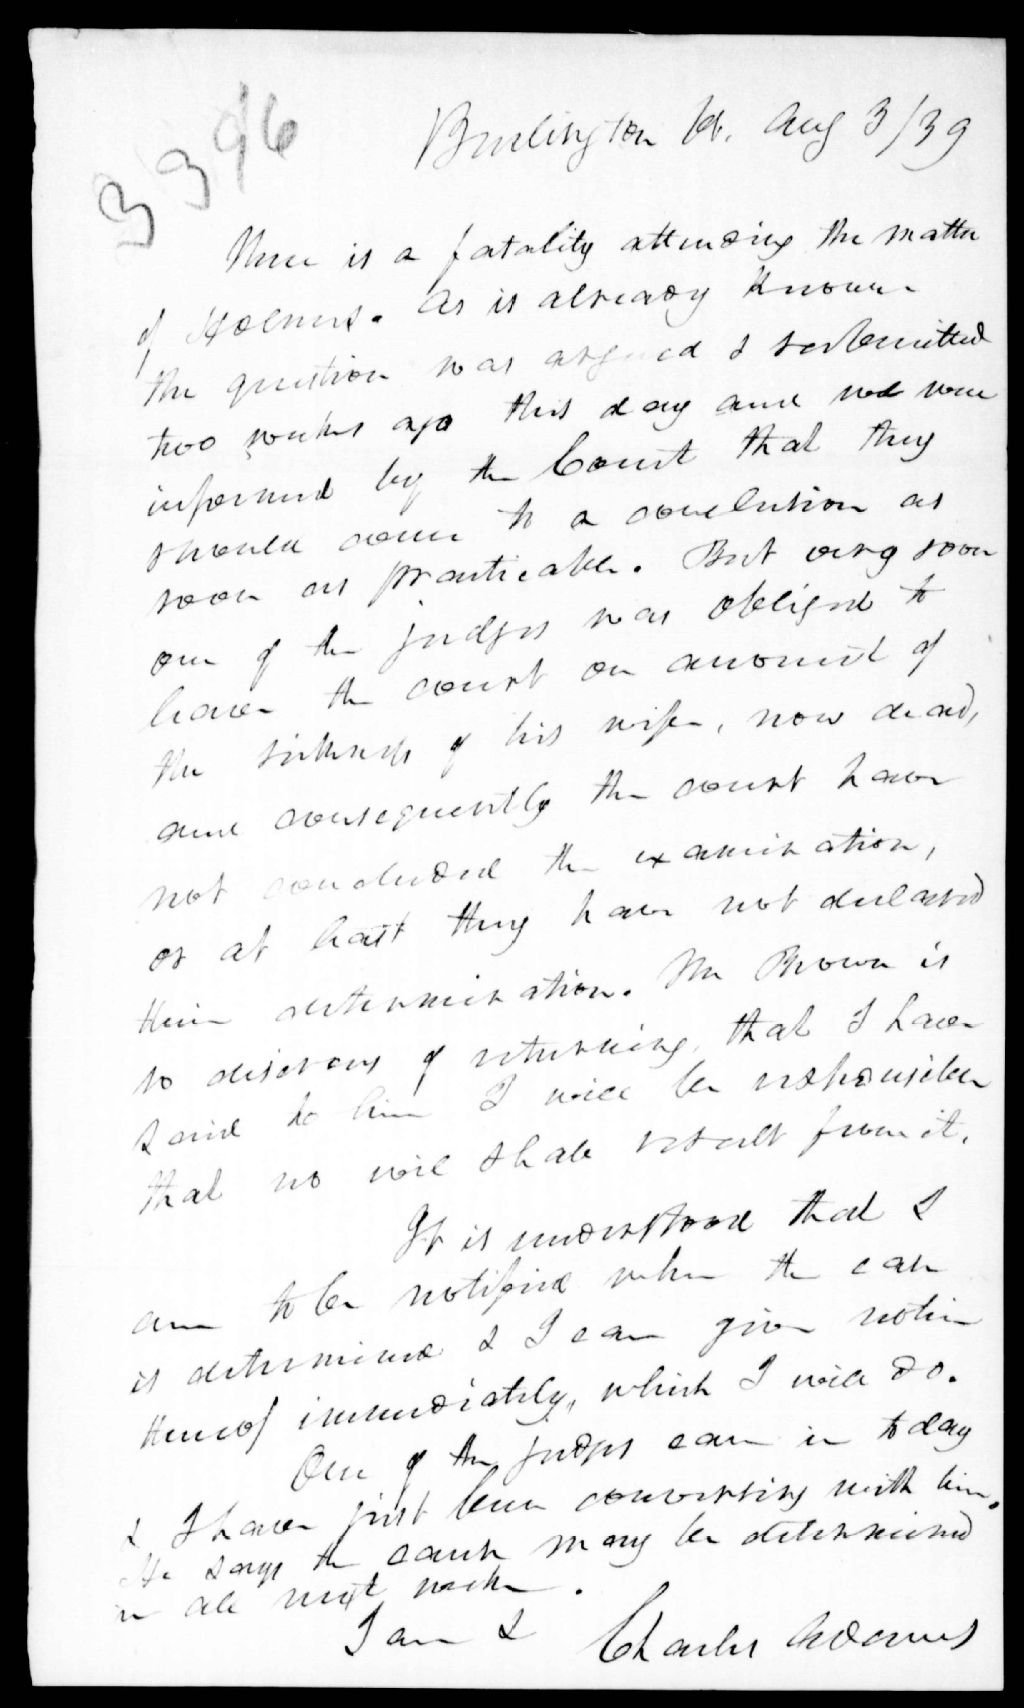 3396
Burlington Vt. Aug 3/39
There is a fatality attending the matter
of Holmes. As is already known
the question was argued & submitted
two weeks ago this day and we were
informed by the Court that they
should come to a conclusion as
soon as practicable. But very soon
one of the judges was obliged to
leave the court on account of
the sickness of his wife, now dead,
and consequently the court have
not concluded the examination,
or at least they have not declared
their determination. Mr Brown is
so desirous of returning, that I have
said to him I will be responsible
that no evil shall result from it.
It is understood that I
am to be notified when the case
is determined & I can give notice
thereof immediately, which I will do.
One of the judges came in today
& I have just been conversing with him.
He says the cause may be determined
in all next week.
I am &
Charles Adams